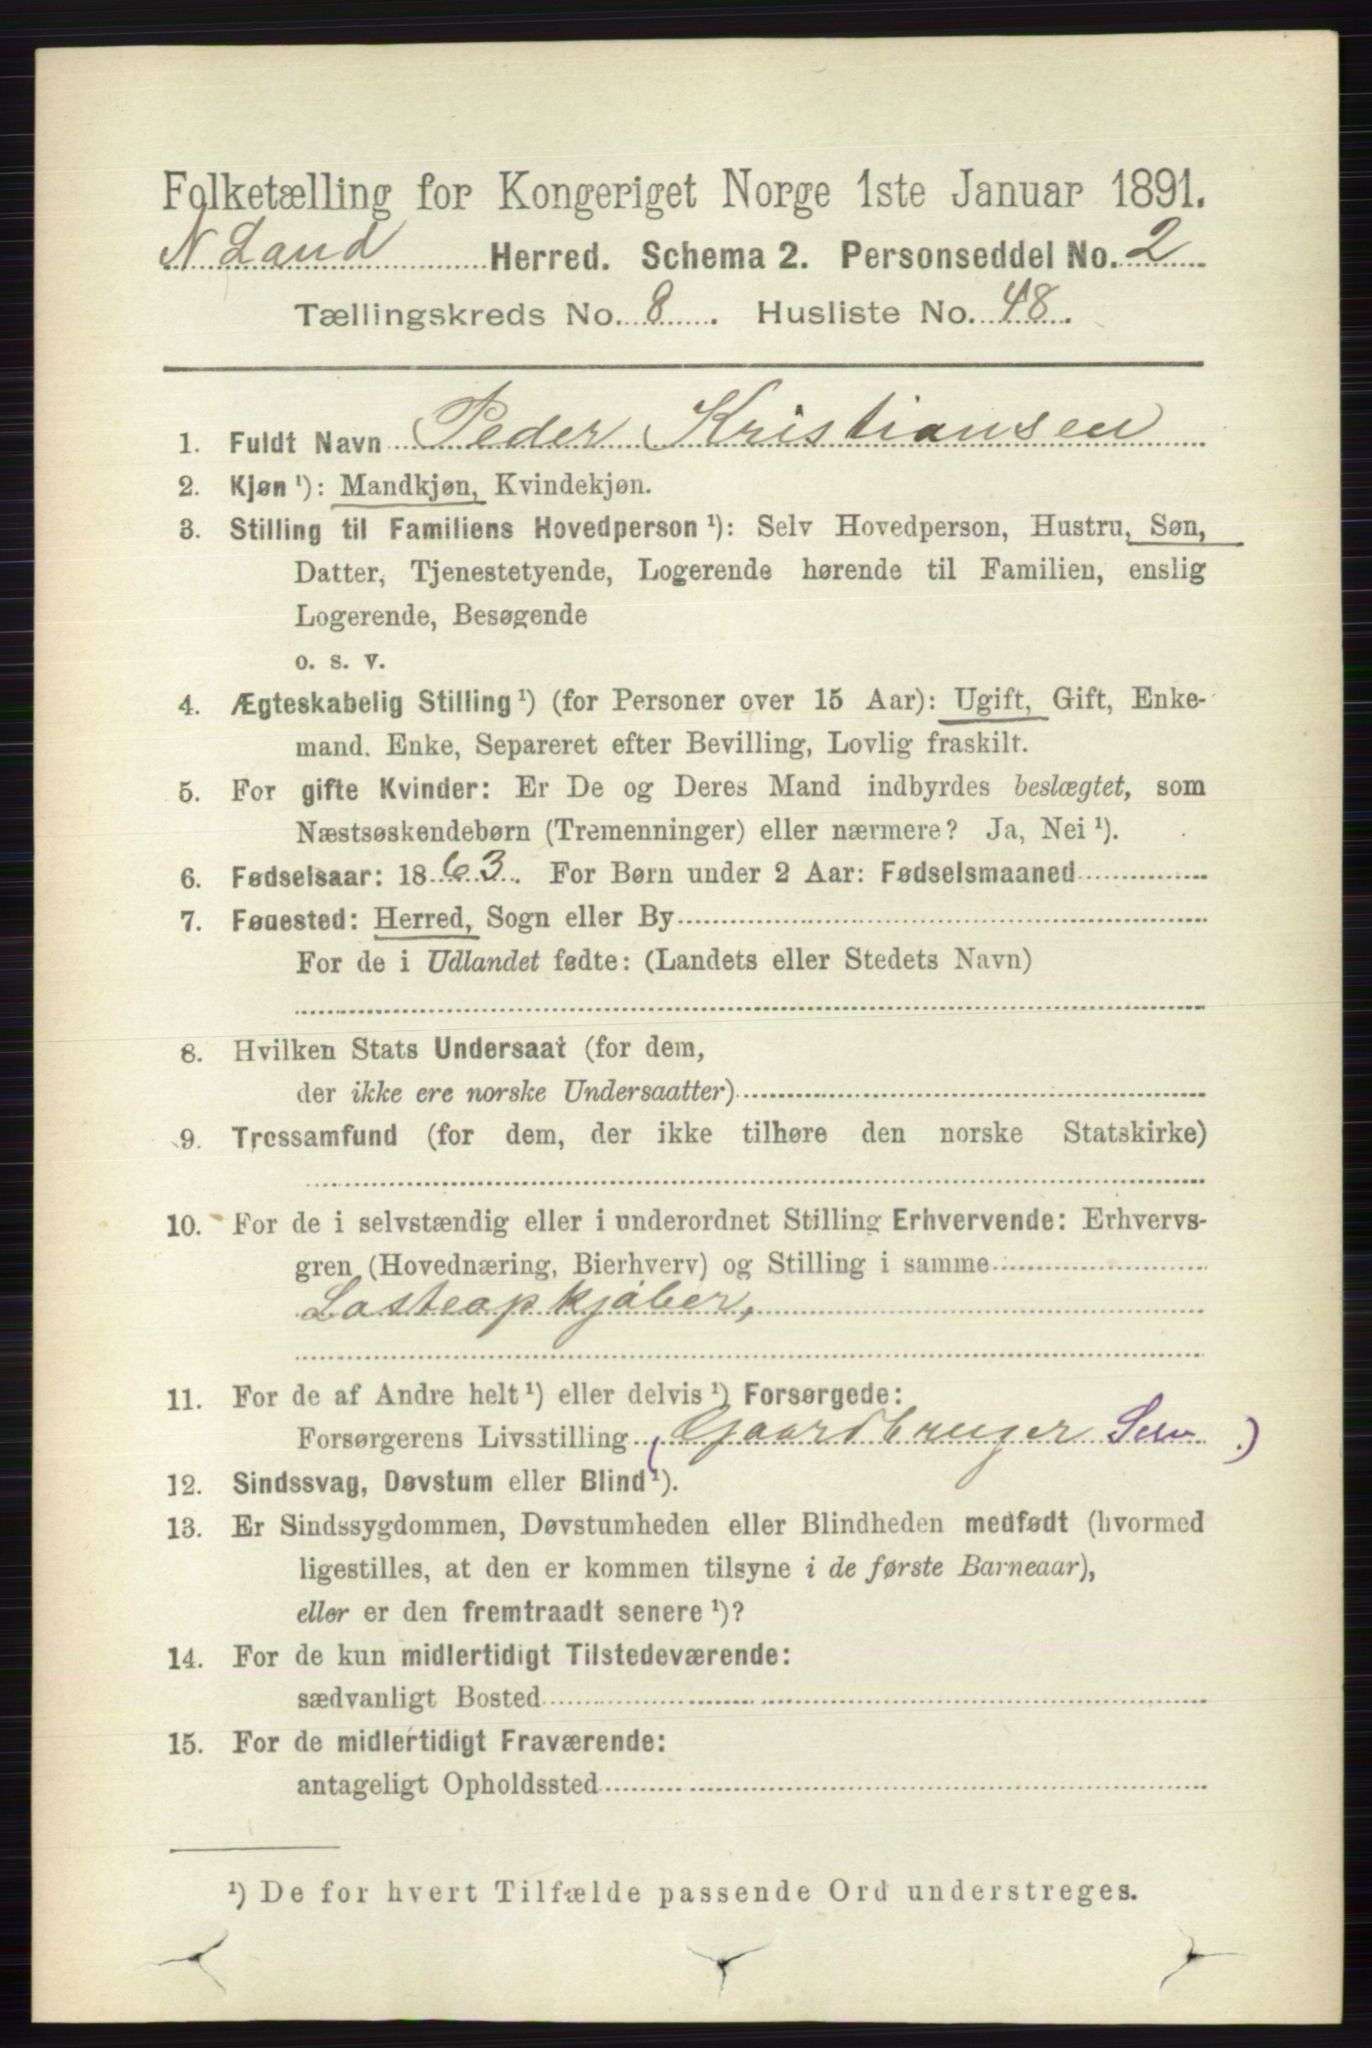 Folketælling for Kongeriget Norge 1ste Januar 1891.
N Land Herred. Schema 2. Personseddel No. 2
Tællingskreds No. 8. Husliste No. 48.
1. Fuldt Navn Peder Kristiansen
2. Kjøn ¹): Mandkjøn, Kvindekjøn.
3. Stilling til Familiens Hovedperson ¹): Selv Hovedperson, Hustru, Søn,
Datter, Tjenestetyende, Logerende hørende til Familien, enslig
Logerende, Besøgende
o. s. v.
4. Ægteskabelig Stilling ¹) (for Personer over 15 Aar): Ugift, Gift, Enke-
mand. Enke, Separeret efter Bevilling, Lovlig fraskilt.
5. For gifte Kvinder: Er De og Deres Mand indbyrdes beslægtet, som
Næstsøskendebørn (Tremenninger) eller nærmere? Ja, Nei ¹).
6. Fødselsaar: 1863. For Børn under 2 Aar: Fødselsmaaned
7. Føuested: Herred, Sogn eller By
For de i Udlandet fødte: (Landets eller Stedets Navn)
8. Hvilken Stats Undersaat (for dem,
der ikke ere norske Undersaatter)
9. Trossamfund (for dem, der ikke tilhøre den norske Statskirke)
10. For de i selvstændig eller i underordnet Stilling Erhvervende: Erhvervs-
gren (Hovednæring, Bierhverv) og Stilling i samme
Lasteopkjøber,
11. For de af Andre helt ¹) eller delvis ¹) Forsørgede:
Forsørgerens Livsstilling (Gaardbruger Selv.)
12. Sindssvag, Døvstum eller Blind ¹).
13. Er Sindssygdommen, Døvstumheden eller Blindheden medfødt (hvormed
ligestilles, at den er kommen tilsyne i de første Barneaar),
eller er den fremtraadt senere ¹)?
14. For de kun midlertidigt Tilstedeværende:
sædvanligt Bosted
15. For de midlertidigt Fraværende:
antageligt Opholdssted
¹) De for hvert Tilfælde passende Ord understreges.